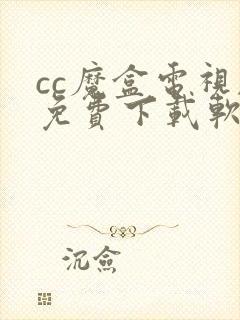 cc魔盒電視
免費下載軟
沉僉